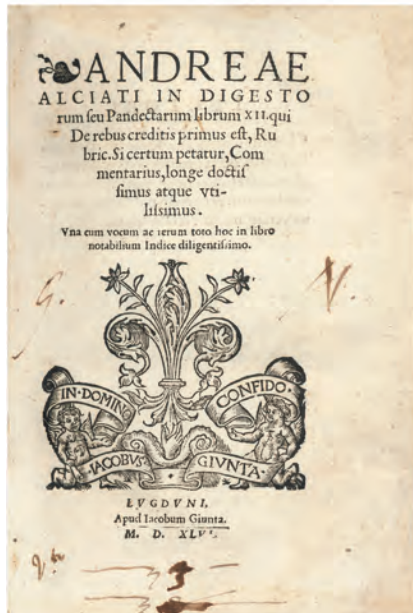 ANDREAE
ALCIATI IN DIGESTO
rum seu Pandectarum librum XII. qui
De rebus creditis primus est, Ru
bric. Si certum petatur, Com
mentarius, longe doctis
simus atque vti-
lissimus.
Vna cum vocum ac rerum toto hoc in libro
notabilium Indice diligentissimo.
G. N.
IN·DOMINO CONFIDO·
IACOBUS· GIUNTA·
LVGDVNI,
Apud Iacobum Giunta.
M. D. XLVI.